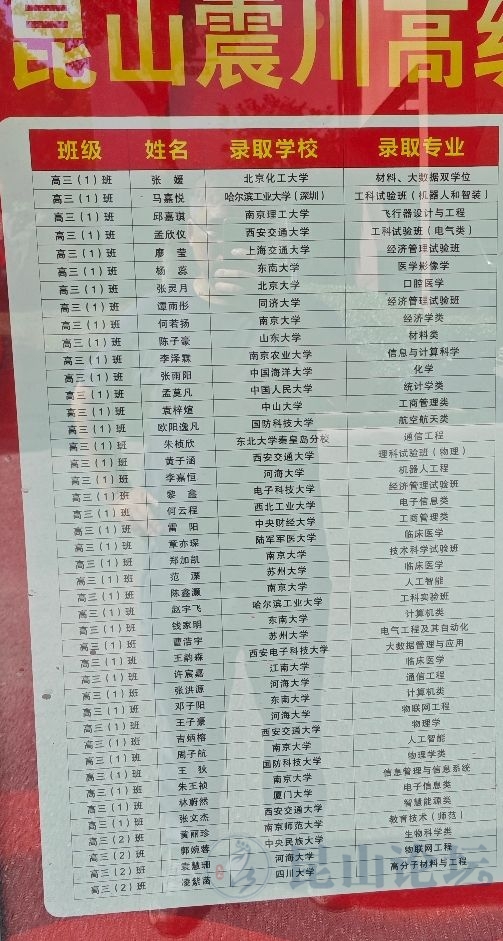 昆山震川高级
班级 姓名 录取学校 录取专业
高三（1）班 张媛 北京化工大学 材料、大数据双学位
高三（1）班 马嘉悦 哈尔滨工业大学（深圳） 工科试验班（机器人和智装）
高三（1）班 邱嘉琪 南京理工大学 飞行器设计与工程
高三（1）班 孟欣仪 西安交通大学 工科试验班（电气类）
高三（1）班 廖莹 上海交通大学 经济管理试验班
高三（1）班 杨蕊 东南大学 医学影像学
高三（1）班 张灵月 北京大学 口腔医学
高三（1）班 谭雨彤 同济大学 经济管理试验班
高三（1）班 何若扬 南京大学 经济学类
高三（1）班 陈子豪 山东大学 材料类
高三（1）班 李泽霖 南京农业大学 信息与计算科学
高三（1）班 张雨阳 中国海洋大学 化学
高三（1）班 孟莫凡 中国人民大学 统计学类
高三（1）班 袁梓煊 中山大学 工商管理类
高三（1）班 欧阳逸凡 国防科技大学 航空航天类
高三（1）班 朱桢欣 东北大学秦皇岛分校 通信工程
高三（1）班 黄子涵 西安交通大学 理科试验班（物理）
高三（1）班 李嘉恒 河海大学 机器人工程
高三（1）班 黎鑫 电子科技大学 经济管理试验班
高三（1）班 何云程 西北工业大学 电子信息类
高三（1）班 雷阳 中央财经大学 工商管理类
高三（1）班 章亦琛 陆军军医大学 临床医学
高三（1）班 郑加凯 南京大学 技术科学试验班
高三（1）班 范溧 苏州大学 临床医学
高三（1）班 陈鑫灏 南京大学 人工智能
高三（1）班 赵宇飞 哈尔滨工业大学 工科实验班
高三（1）班 钱家明 东南大学 计算机类
高三（1）班 曹浩宇 苏州大学 电气工程及其自动化
高三（1）班 王韵森 西安电子科技大学 大数据管理与应用
高三（1）班 许宸嘉 江南大学 临床医学
高三（1）班 张洪源 河海大学 通信工程
高三（1）班 邓子阳 东南大学 计算机类
高三（1）班 王子豪 河海大学 物联网工程
高三（1）班 吉炳榕 西安交通大学 物理学
高三（1）班 周子航 南京大学 人工智能
高三（1）班 王狄 国防科技大学 物理学类
高三（1）班 朱王祯 南京大学 信息管理与信息系统
高三（1）班 林蔚然 厦门大学 电子信息类
高三（1）班 张文杰 西安交通大学 智慧能源类
高三（2）班 黄丽珍 南京师范大学 教育技术（师范）
高三（2）班 郭婉蓉 中央民族大学 生物科学类
高三（2）班 袁慧珊 河海大学 物联网工程
高三（2）班 凌紫菡 四川大学 高分子材料与工程
昆山论坛